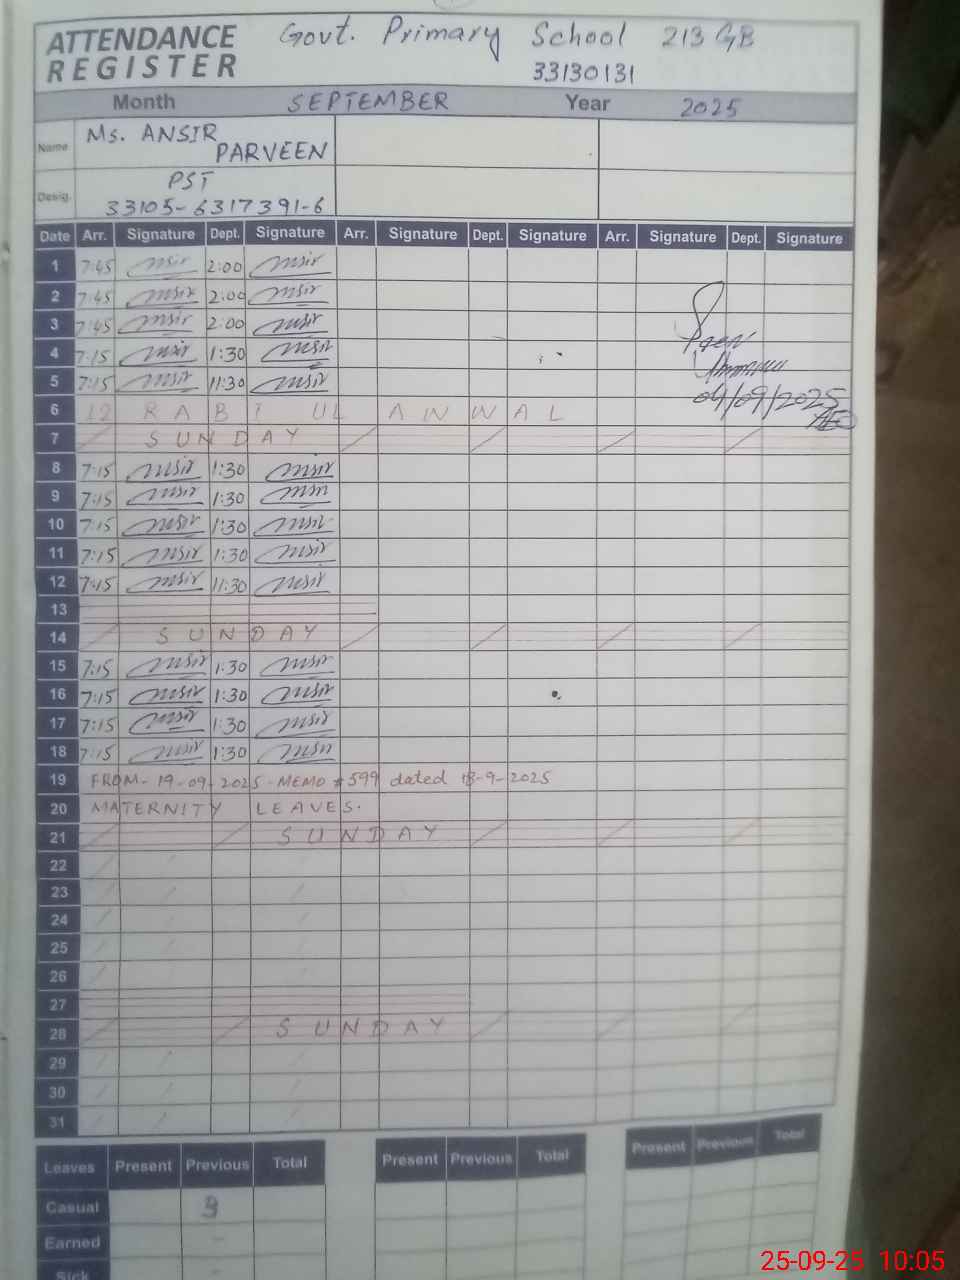 ATTENDANCE REGISTER
Govt. Primary School 213 GB
33130131
Month SEPTEMBER Year 2025
Name Ms. ANSIR PARVEEN
Desig. PST
33105-6317391-6
Date Arr. Signature Dept. Signature Arr. Signature Dept. Signature Arr. Signature Dept. Signature
1 7:45 2:00
2 7:45 2:00
3 7:45 2:00
4 7:15 1:30
5 7:15 11:30
04/09/2025
6 12 RABI UL AWWAL
7 SUNDAY
8 7:15 1:30
9 7:15 1:30
10 7:15 1:30
11 7:15 1:30
12 7:15 11:30
13
14 SUNDAY
15 7:15 1:30
16 7:15 1:30
17 7:15 1:30
18 7:15 1:30
19 FROM- 19-09-2025-MEMO #599 dated 18-9-2025
20 MATERNITY LEAVES.
21 SUNDAY
22
23
24
25
26
27
28 SUNDAY
29
30
31
Leaves Present Previous Total Present Previous Total Present Previous Total
Casual
Earned
Sick
25-09-25 10:05